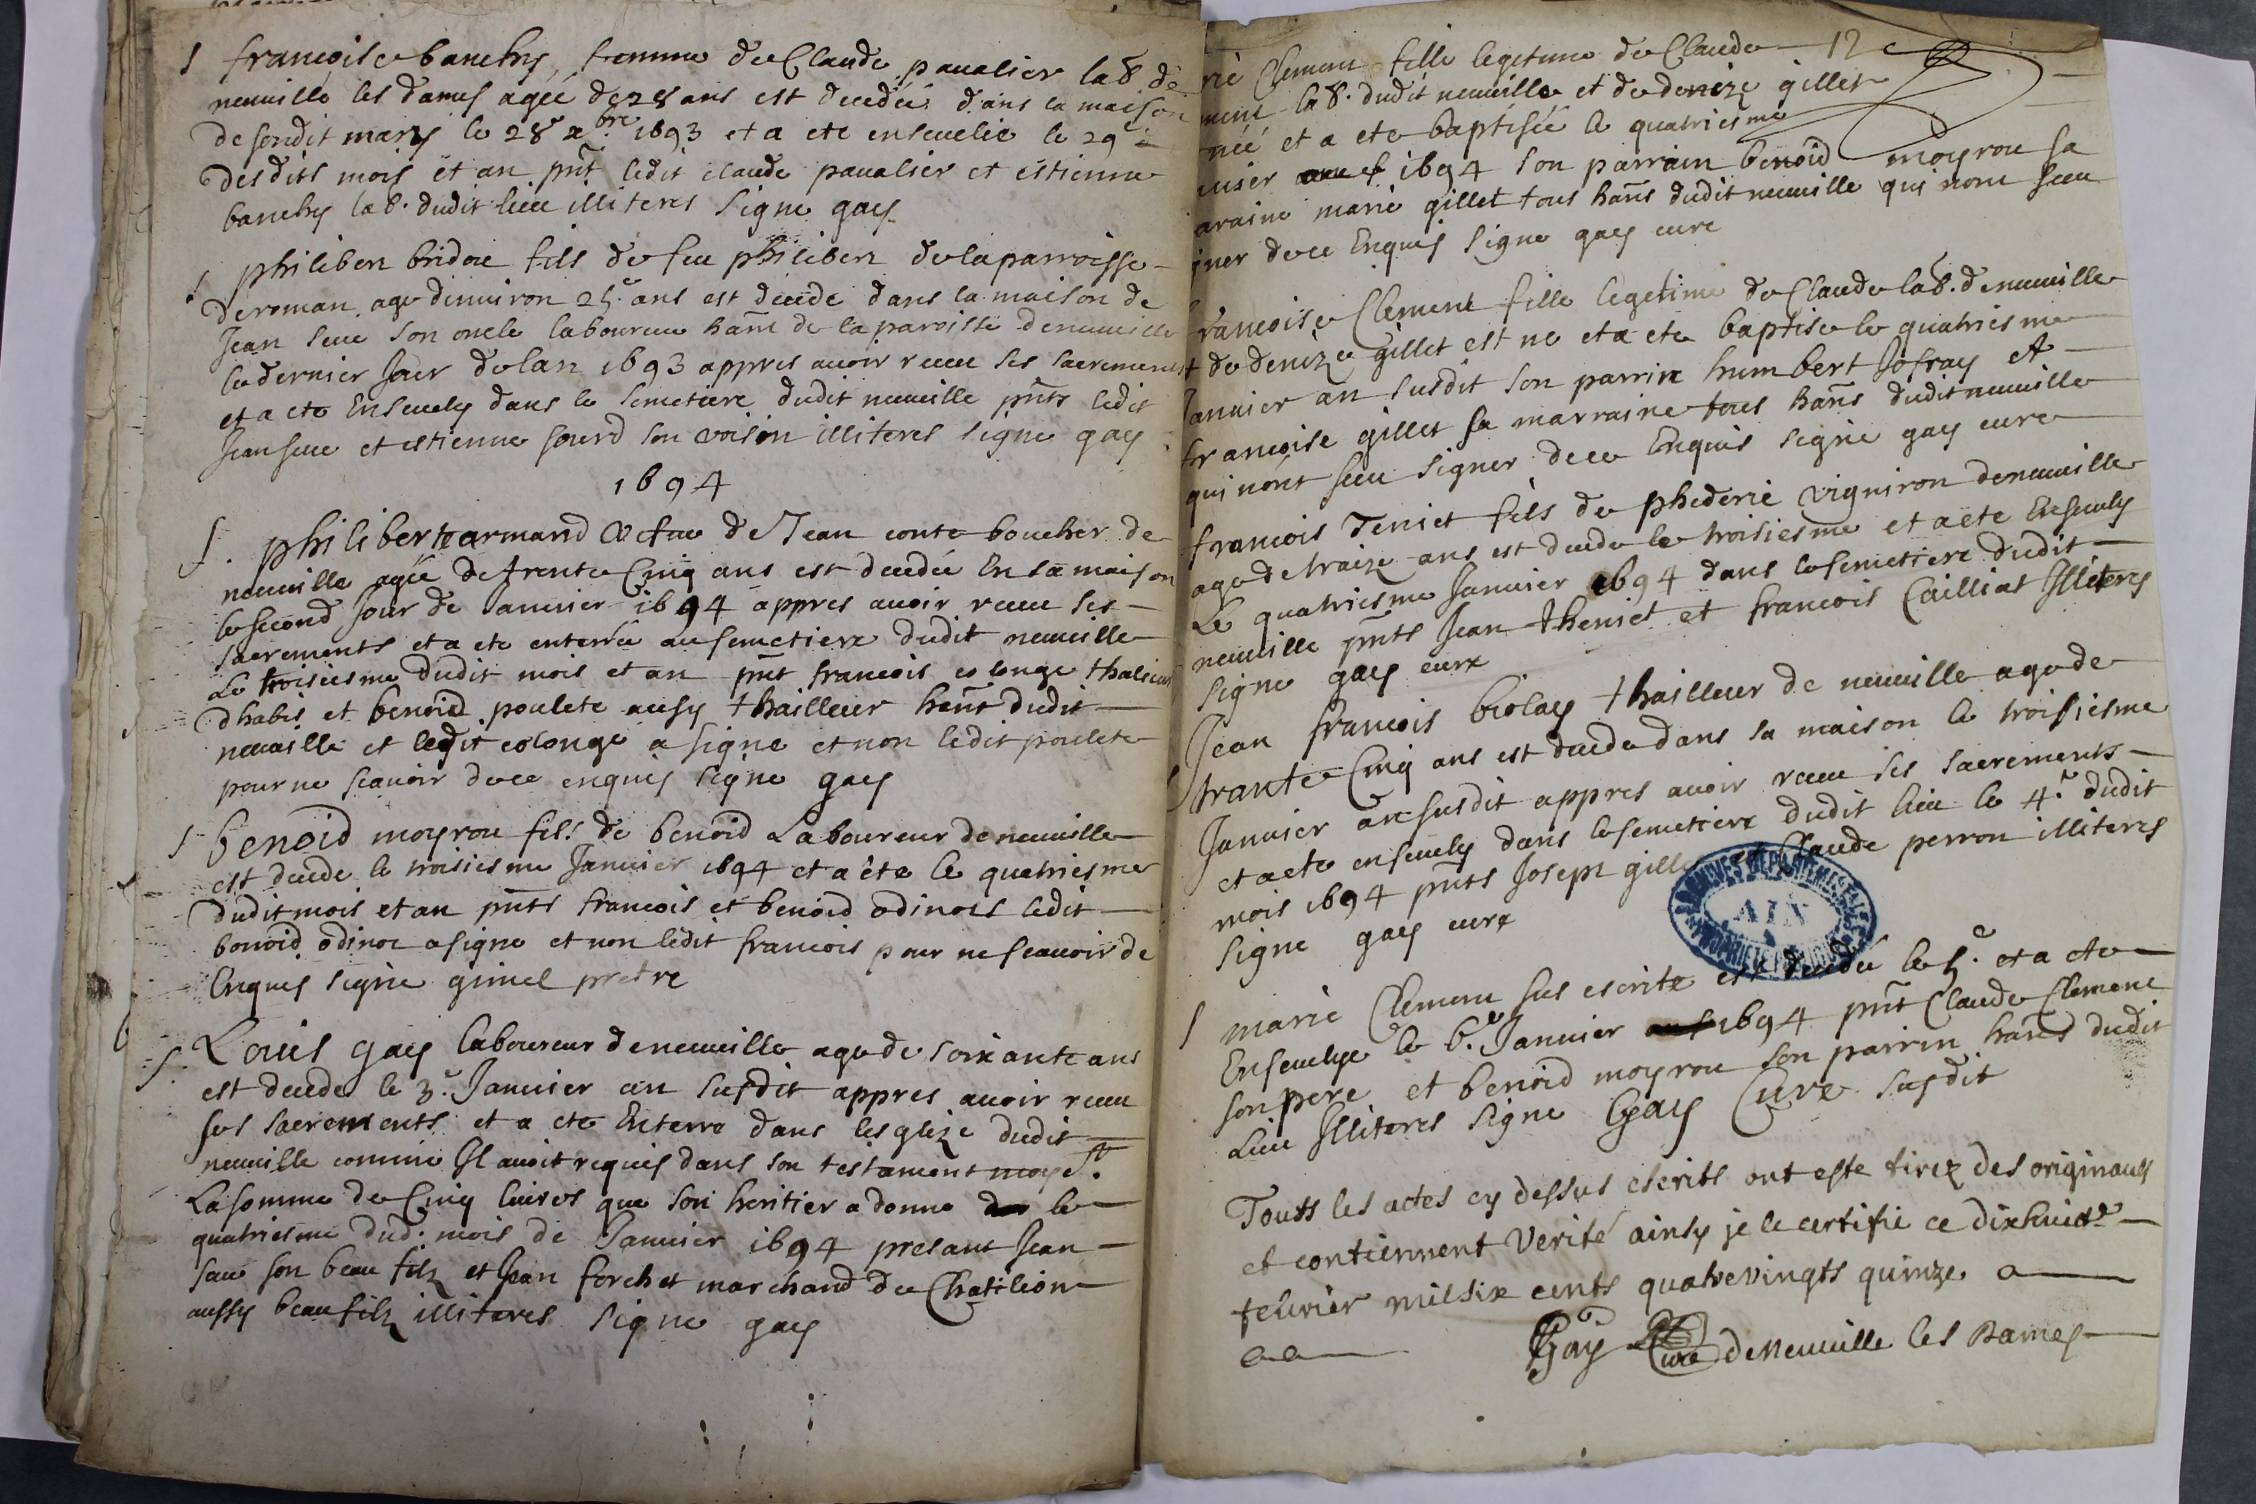 françoise banchy femme de Claude paualier lab. de
neuuille les dames agée de 28 ans est decedée dans la maison
de sondit mary le 28e xbre 1693 et a ete enseuelie le 29e
desdits mois et an pnt ledit claude paualier et estienne
banchy lab. dudit lieu illiteres signe gay
philiber bridon fils de feu philiber de la parroisse
de roman age denuiron 25e ans est decede dans la maison de
Jean seue son oncle laboureur hant de la paroisse de neuuille
le dernier Jour de lan 1693 appres auoir receu ses sacrements
et a ete Enseuely dans le semetiere dudit neuuille pnts ledit
Jean seue et estienne sourd son voisin illiteres signe gay
1694
philiberte armand vefue de Jean conte boucher de
neuuille agée de trente Cinq ans est decedée En sa maison
le second Jour de Januier 1694 appres auoir receu ses
sacrements et a ete enterrée au semetiere dudit neuuille
Le troisiesme dudit mois et an pnt francois colonge thalieur
dhabis et benoid poulete ausy thailleur hant dudit
neuuille et ledit colonge a signe et non ledit poulete
pour ne scauoir de ce enquis signe gay
benoid moyrou fils de benoid Laboureur de neuuille
est decede le troisiesme Januier 1694 et a ête le quatriesme
dudit mois et an pnts francois et benoid odinoss ledit
benoid odinor a signe et non ledit francois pour ne scauoir de
Enquis signe gimel pretre
Louis gay laboureur de neuuille age de soixante ans
est decede le 3e Januier an susdit appres auoir receu
ses sacrements et a ete Enterre dans lesglize dudit
neuuille comme Il auoit requis dans son testament moyet
La somme de Cinq liures que son heritier a donne le
quatriesme dud. mois de Januier 1694 presant Jean
seue son beau filz et Jean forchet marchand de Chatilion
aussy beau filz illiteres signe gay
rie Clement fille legetime de Claude 12
ment lab. dudit neuuille et de denize gillet
née et a ete baptisée le quatriesme
nuier 1694 son parrain benoid moyrou sa
araine marie gillet tous hans dudit neuuille qui nont sceu
iner de ce Enquis signe gay cure
francoise Clement fille legetime de Claude lab. de neuuille
et de denize gillet est ne et a ete baptise le quatriesme
Januier an susdit son parrin humbert Jofray et
francoise gillet sa marraine tous hans dudit neuuille
qui nont sceu signer de ce Enquis signe gay cure
francois Teniet fils de phederic vigniron de neuuille
age de traize ans est decede le troisiesme et a ete Enseuely
Le quatriesme Januier 1694 dans le semetiere dudit
neuuille pnts Jean theniet et francois Cailliat Illiteres
signe gay cure
Jean francois biolay thailleur de neuuille age de
trante Cinq ans est decede dans sa maison le troisiesme
Januier an susdit appres auoir receu ses sacrements
et a ete enseuely dans le semetiere dudit lieu le 4e dudit
mois 1694 pnts Joseph gillet et Claude perron illiteres
signe gay cure
ARCHIVES DEPARTEMENTALES
AIN
PROPRIETE PUBLIQUE
marie Clement sus escrite est decedée le 5e et a ete
Enseuelye le 6e Januier 1694 pnt Claude Clement
son pere et benoid moyrou son parrin hans dudit
Lieu Illiteres signe Gay Cure susdit
Touts les actes cy dessus escrits ont este tirez des originaux
et contiennent Verité ainsy je le certifie ce dixhuict
feburier mil six cents quatrevingts quinze
Gay Cure de Neuuille les Dames